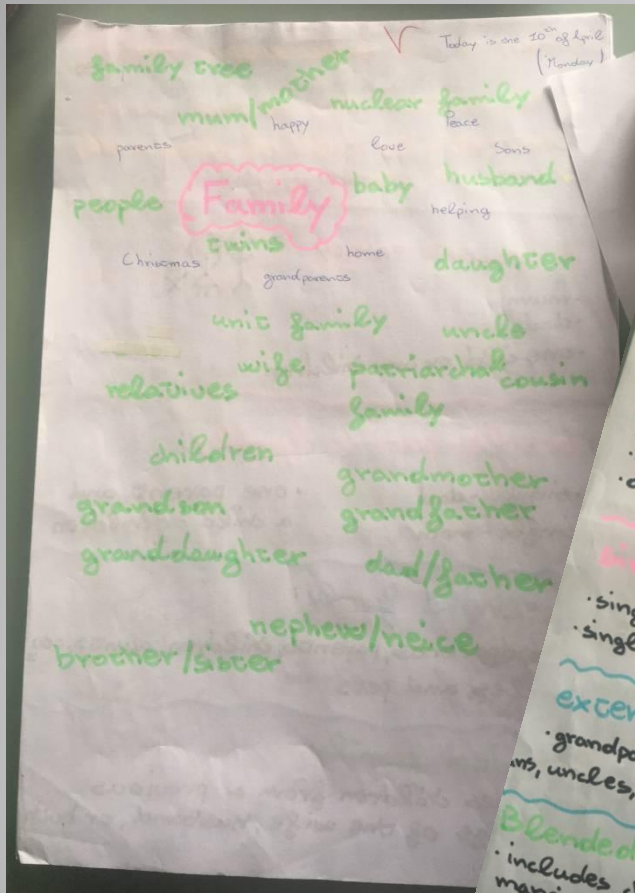 Today is the 10th of April
(Monday)
family tree
mum/mother
nuclear family
happy
Peace
parents
love
Sons
people
Family
baby
husband
helping
twins
Christmas
home
grandparents
daughter
unit family
uncle
wife
patriarchal
family
cousin
relatives
children
grandmother
grandson
grandfather
granddaughter
dad/father
nephew/neice
brother/sister
·sing
·singl
exten
·grandpa
uncles,
Blended
·includes